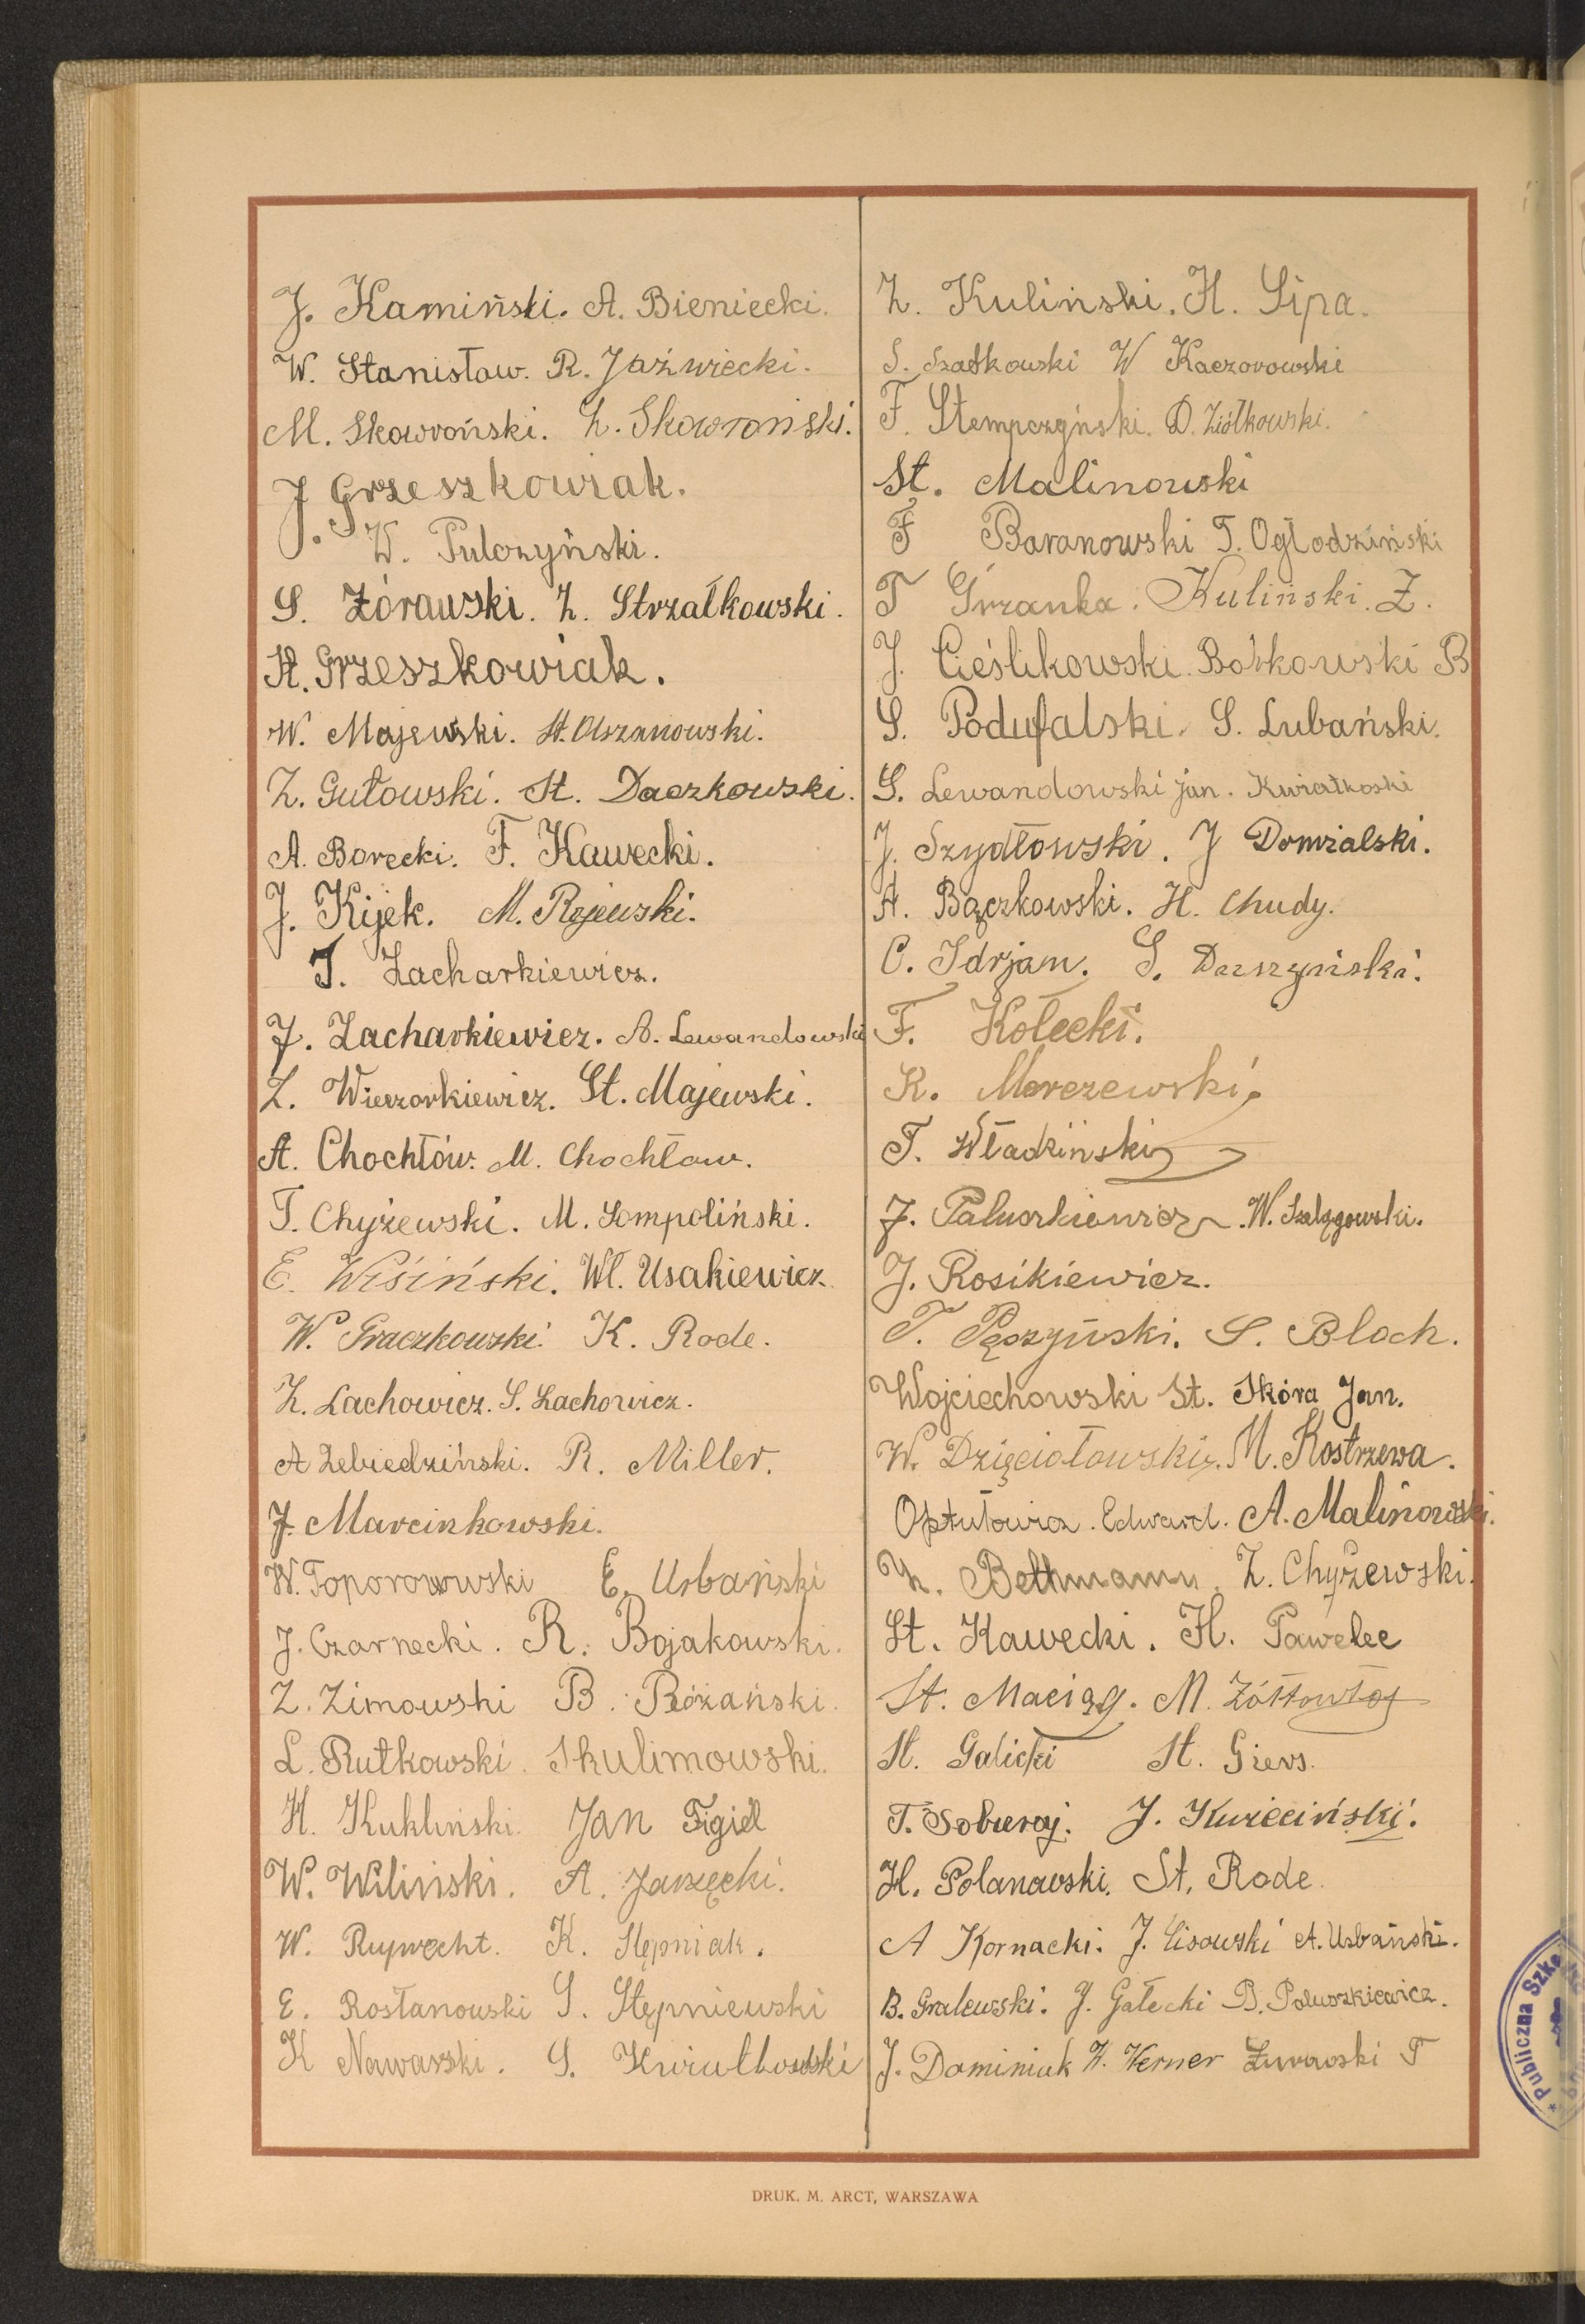 J. Kamiński. A. Bieniecki.
W. Stanisław. R. Jaźwiecki.
M. Skowroński. Z. Skowroński.
J. Grzeszkowiak.
W. Pulczyński.
S. Żórawski. Z. Strzałkowski.
H. Grzeszkowiak.
W. Majewski. St. Olszanowski.
Z. Gutowski. St. Daczkowski.
A. Borecki. F. Kawecki.
J. Kijek. M. Rejewski.
T. Zacharkiewicz.
J. Zacharkiewicz. A. Lewandowski
Z. Wieczorkiewicz. St. Majewski.
A. Chochłów. M. Chochłow.
T. Chyżewski. M. Sompoliński.
E. Wiśiński. Wl. Usakiewicz.
W. Graczkowski. K. Rode.
Z. Lachowicz. S. Lachowicz.
A Żebiedziński. R. Miller.
J. Marcinkowski.
W. Toporowski E. Urbański
J. Czarnecki. R. Bojakowski.
Z. Zimowski B. Różański.
L. Rutkowski. Skulimowski.
H. Kukliński. Jan Figiel
W. Wiliński. A. Jarzęcki.
W. Ruprecht. K. Stępniak.
E. Rosłanowski S. Stępniewski
K Nawarski. S. Kwiatkowski
Z. Kuliński. H. Lipa.
S. Szatkowski W Kaczorowski
F. Stempczyński. D. Ziółkowski.
St. Malinowski
F Baranowski T. Ogłodziński
T Grzanka. Kuliński. Z.
J. Cieślikowski. Borkowski B
S. Podufalski. S. Lubański.
S. Lewandowski Jan. Kwiatkoski
J. Szydłowski. J Domżalski.
A. Bączkowski. H. Chudy.
C. Idrjan. S. Daszyński.
F. Kołecki.
K. Morczewski.
T. Władziński
J. Paluszkiewicz. W. Szelągowski.
J. Rosikiewicz.
T. Pęczyński. S. Bloch.
Wojciechowski St. Skóra Jan.
W. Dzięciołowski. M. Kostrzewa.
Optułowicz. Edward. A. Malinowski.
Bethmann. Z. Chyżewski.
St. Kawecki. H. Pawelec
St. Maciąg. M.
H. Galicki St. Giers.
T. Soberaj. J. Kwieciński.
H. Polanowski. St. Rode.
A Kornacki. J. Lisowski A. Urbański.
B. Gralewski. J. Gałecki B. Paluszkiewicz.
J. Dominiak W. Werner Żurawski T
DRUK. M. ARCT, WARSZAWA
* Publiczna Szko